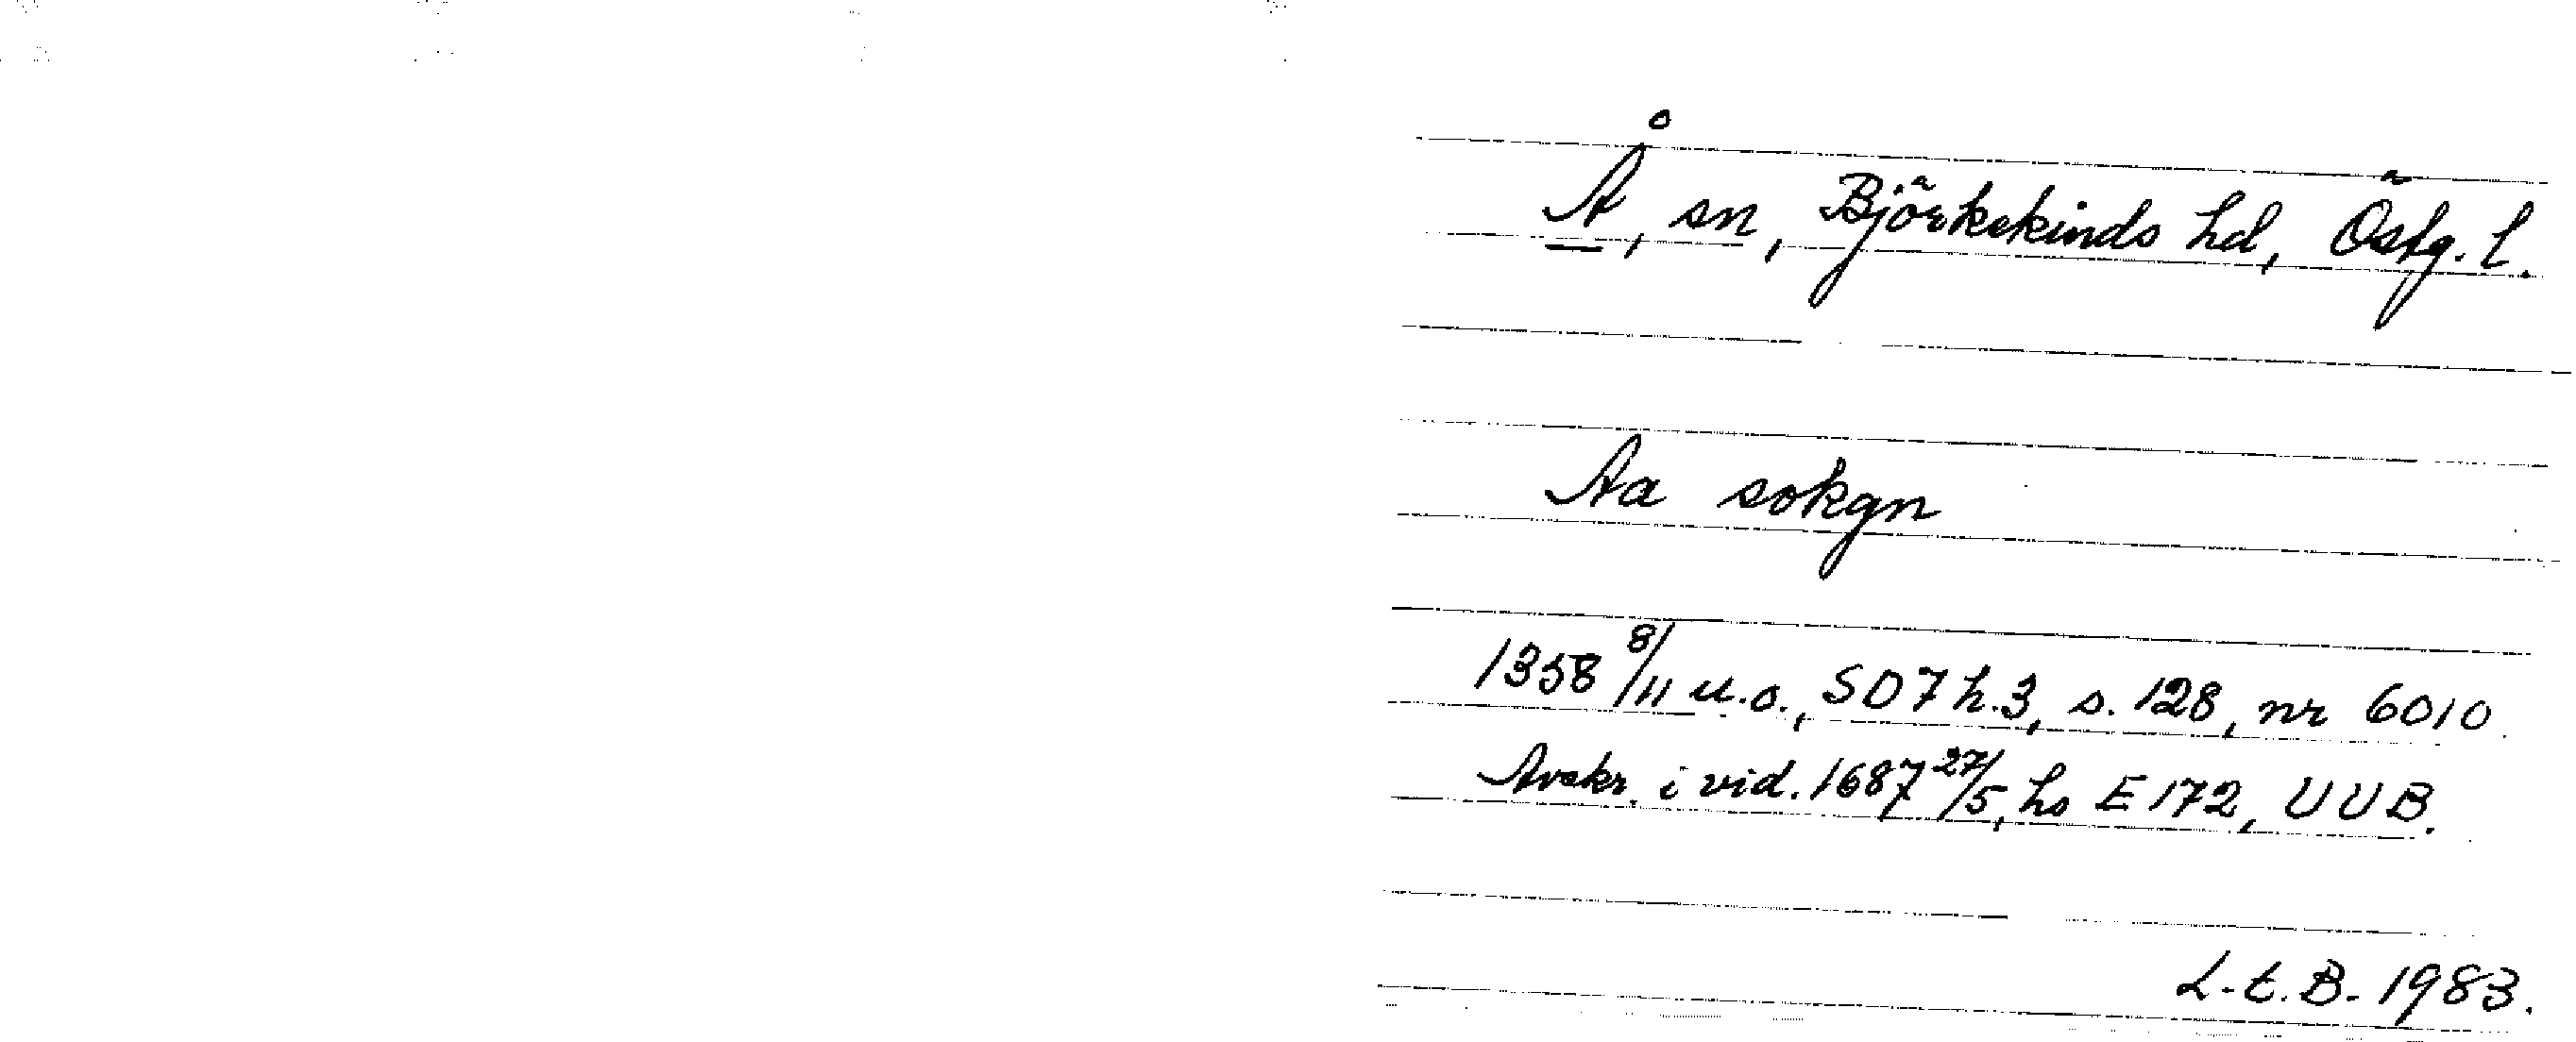 Å, sn, Björkekinds hd, Östg. l.
Aa sokgn
1358 8/11 u.o., SD 7 h.3, s. 128, nr 6010.
Avskr. i vid. 1687 27/5, hs E 172, UUB.
L.t.B. 1983.